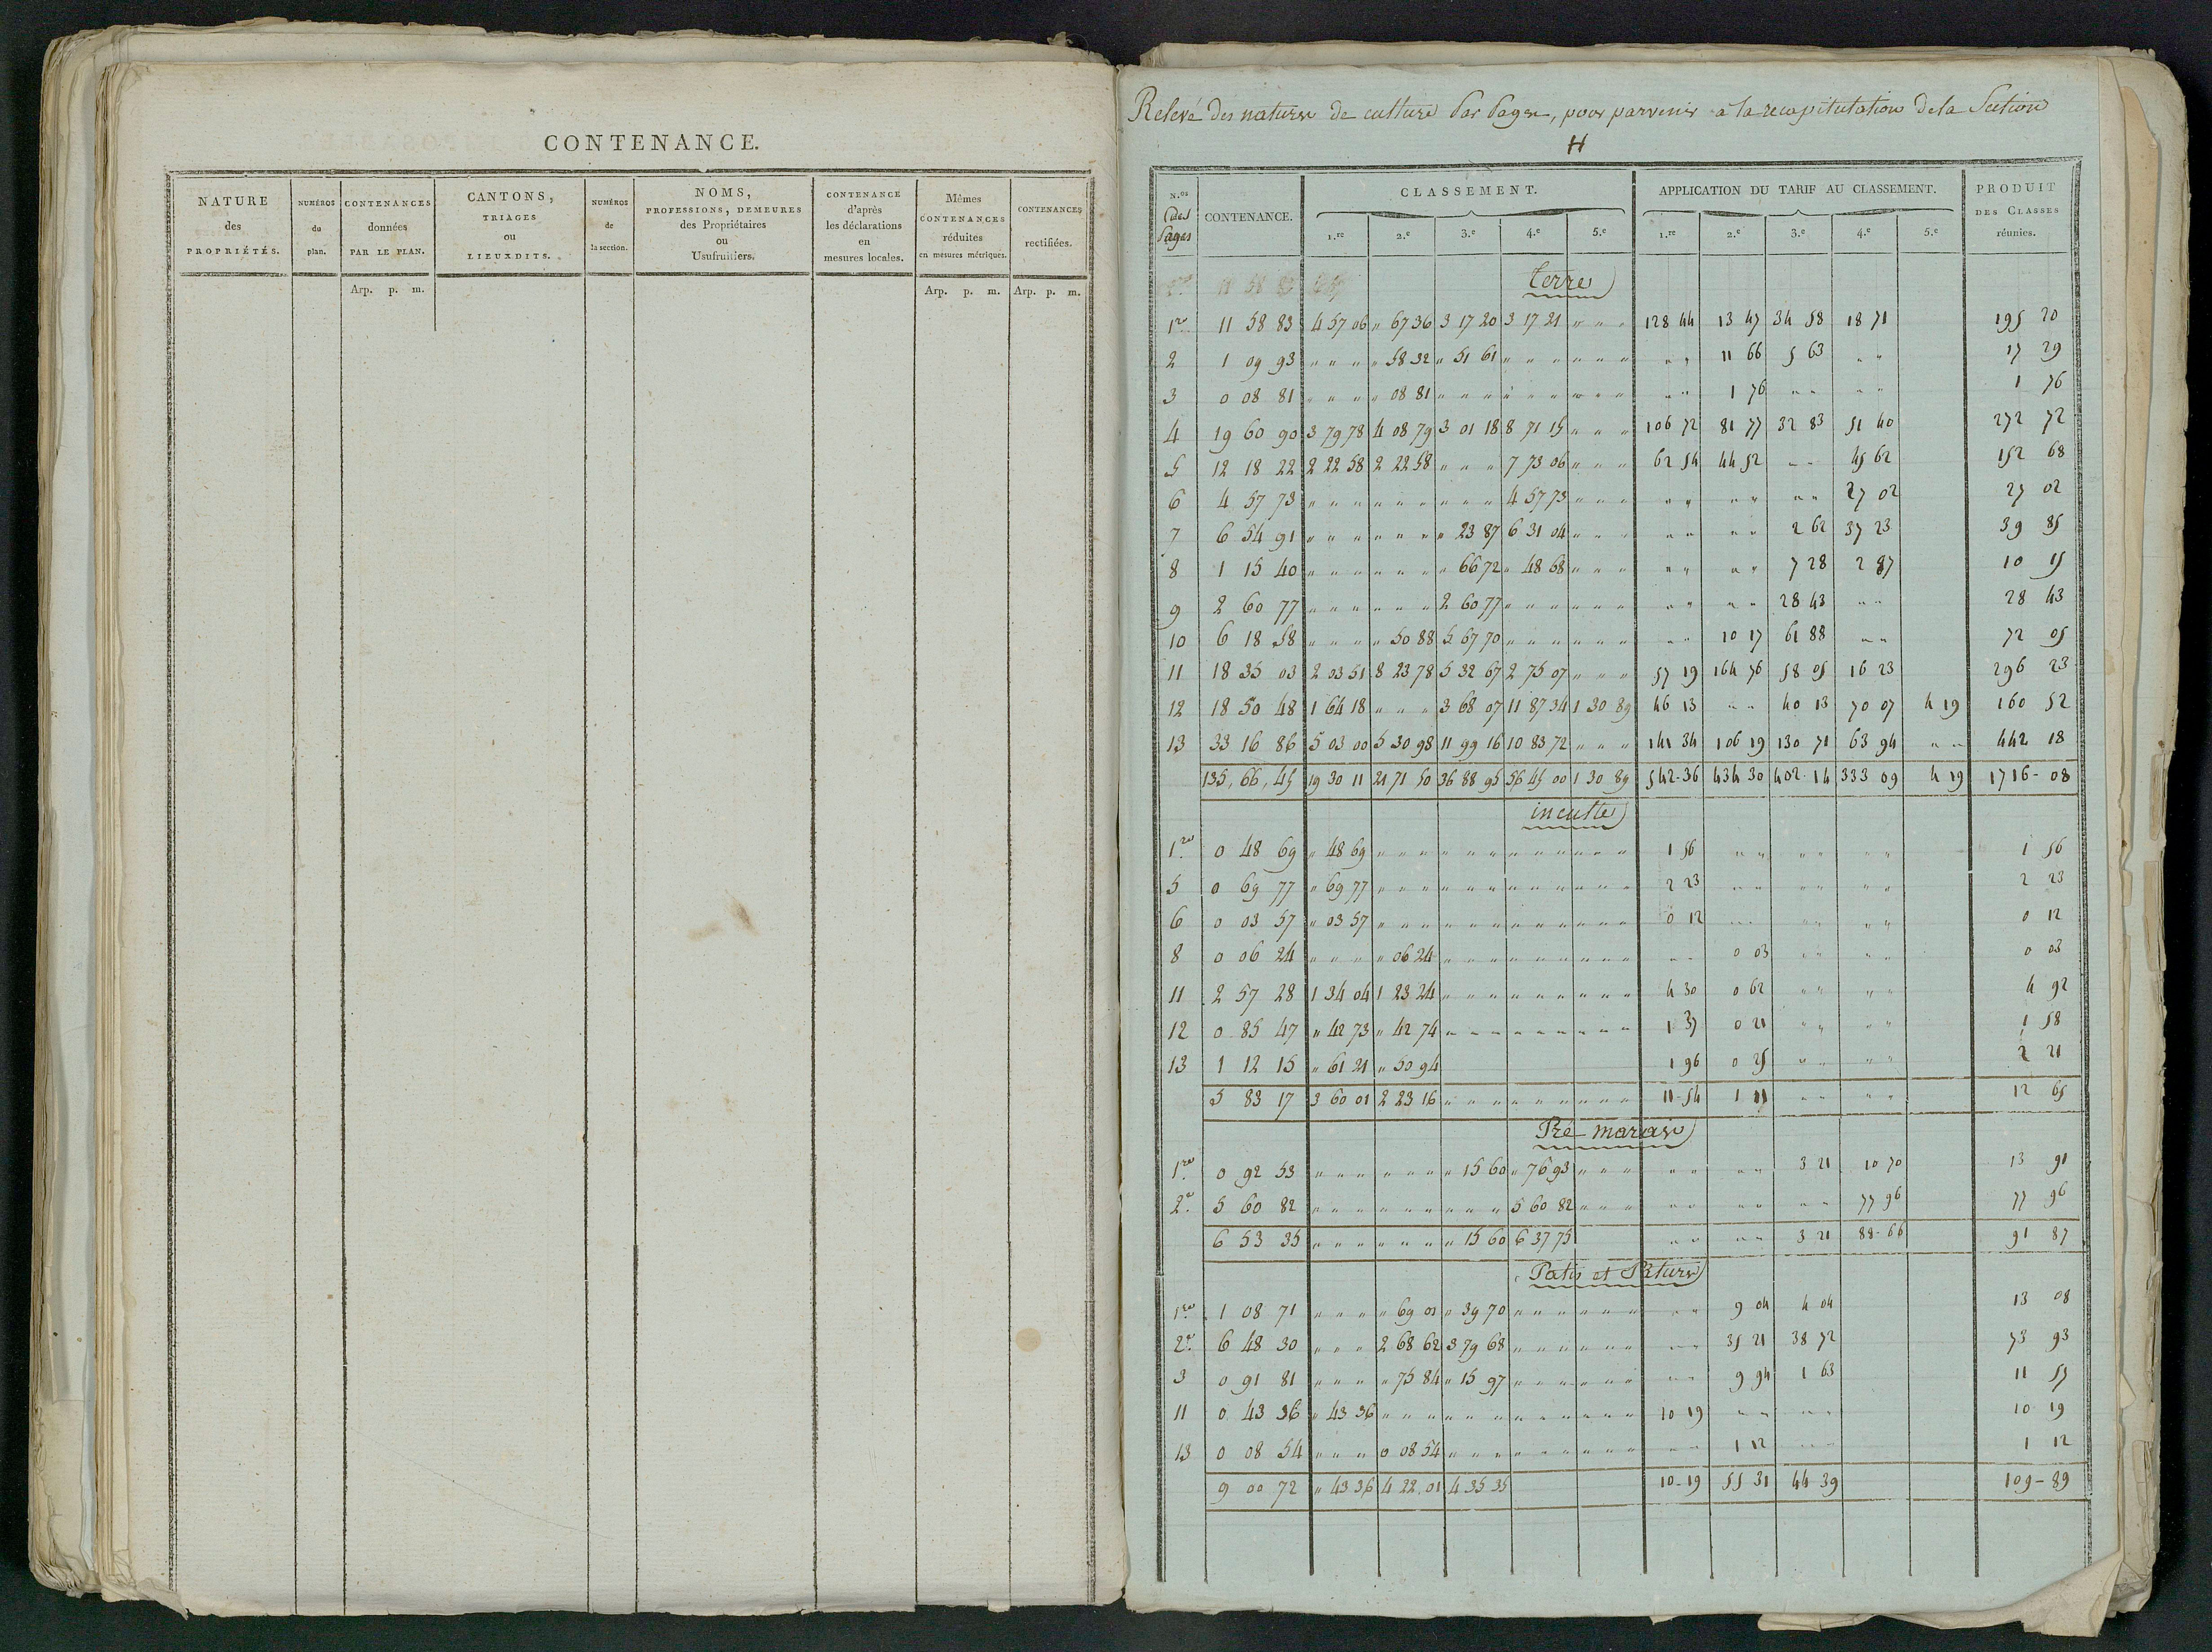 CONTENANCE.
NATURE des PROPRIÉTÉS.
NUMÉROS du plan.
CONTENANCES données PAR LE PLAN.
CANTONS, TRIAGES ou LIEUXDITS.
NUMÉROS de la section.
NOMS, PROFESSIONS, DEMEURES des Propriétaires ou Usufruitiers.
CONTENANCE d'après les déclarations en mesures locales.
Mêmes CONTENANCES réduites en mesures métriques.
CONTENANCES rectifiées.
Arp. p. m. Arp. p. m. Arp. p. m.
Relevé des natures de culture Par Pages, pour parvenir a la recapitulation de la Section
H
N.os des Pages
CONTENANCE.
CLASSEMENT.
1.re 2.e 3.e 4.e 5.e
APPLICATION DU TARIF AU CLASSEMENT.
1.re 2.e 3.e 4.e 5.e
PRODUIT DES CLASSES réunies.
terre
1re 11 58 83 4 57 06 " 67 36 3 17 20 3 17 21 " " " 128 44 13 47 34 58 18 71 195 20
2 1 09 93 " " " " 58 32 " 51 61 " " " " " " " " 11 66 5 63 " " 17 29
3 0 08 81 " " " " 08 81 " " " " " " " " " " " 1 76 " " " " 1 76
4 19 60 90 3 79 78 4 08 79 3 01 18 8 71 15 " " " 106 72 81 77 32 83 51 40 272 72
5 12 18 22 2 22 58 2 22 58 " " " 7 73 06 " " " 62 54 44 52 " " 45 62 152 68
6 4 57 73 " " " " " " " " " 4 57 73 " " " " " " " " " 27 02 27 02
7 6 54 91 " " " " " " " 23 87 6 31 04 " " " " " " " 2 62 37 23 39 85
8 1 15 40 " " " " " " " 66 72 " 48 68 " " " " " " " 7 28 2 87 10 15
9 2 60 77 " " " " " " 2 60 77 " " " " " " " " " " 28 43 " " 28 43
10 6 18 58 " " " " 50 88 5 67 70 " " " " " " " " 10 17 61 88 " " 72 05
11 18 35 03 2 03 51 8 23 78 5 32 67 2 75 07 " " " 57 19 164 76 58 05 16 23 296 23
12 18 50 48 1 64 18 " " " 3 68 07 11 87 34 1 30 89 46 13 " " 40 13 70 07 4 19 160 52
13 33 16 86 5 03 00 5 30 98 11 99 16 10 83 72 " " " 141 34 106 19 130 71 63 94 " " 442 18
135, 66, 45 19 30 11 21 71 50 36 88 95 56 45 00 1 30 89 542-36 434 30 402-14 333 09 4 19 1716-08
inculte
1re 0 48 69 " 48 69 " " " " " " " " " " " " 1 56 " " " " " " 1 56
5 0 69 77 " 69 77 " " " " " " " " " " " " 2 23 " " " " " " 2 23
6 0 03 57 " 03 57 " " " " " " " " " " " " 0 12 " " " " " " 0 12
8 0 06 24 " " " " 06 24 " " " " " " " " " " " 0 03 " " " " 0 03
11 2 57 28 1 34 04 1 23 24 " " " " " " " " " 4 30 0 62 " " " " 4 92
12 0 85 47 " 42 73 " 42 74 " " " " " " " " " 1 37 0 21 " " " " 1 58
13 1 12 15 " 61 21 " 50 94 1 96 0 25 " " " " 2 21
5 83 17 3 60 01 2 23 16 " " " " " " " " " 11-54 1 11 " " " " 12 65
Pré marais
1re 0 92 53 " " " " " " " 15 60 " 76 93 " " " " " " " 3 21 10 70 13 91
2e 5 60 82 " " " " " " " " " 5 60 82 " " " " " " " " " 77 96 77 96
6 53 35 " " " " " " " 15 60 6 37 75 " " " " 3 21 88-66 91 87
Patis et Pature
1re 1 08 71 " " " " 69 01 " 39 70 " " " " " " " " 9 04 4 04 13 08
2e 6 48 30 " " " 2 68 62 3 79 68 " " " " " " " " 35 21 38 72 73 93
3 0 91 81 " " " " 75 84 " 15 97 " " " " " " " " 9 94 1 63 11 57
11 0 43 36 " 43 36 " " " " " " " " " " " " 10 19 " " " " 10 19
13 0 08 54 " " " 0 08 54 " " " " " " " " " " " 1 12 " " 1 12
9 00 72 " 43 36 4 22 01 4 35 35 10-19 55 31 44 39 109-89